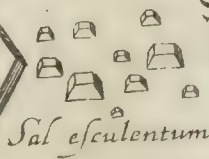 Sal eſculentum